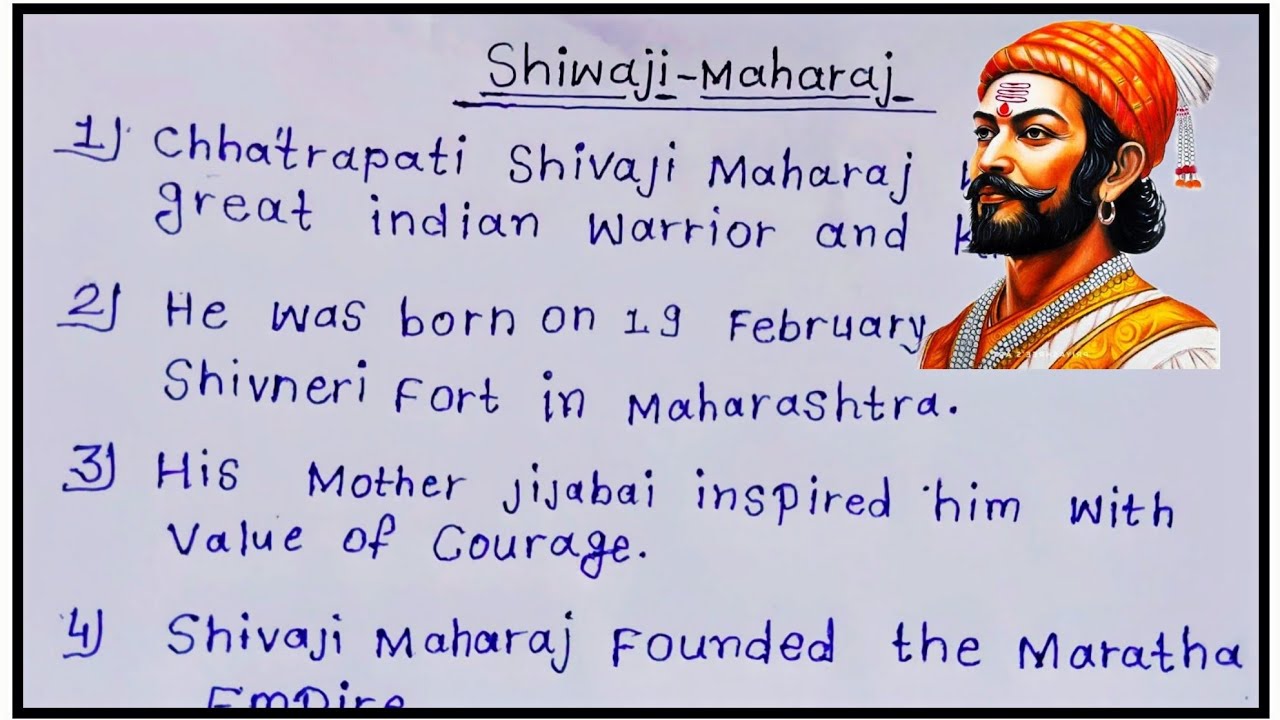 Shiwaji-Maharaj
1) Chhatrapati Shivaji Maharaj
great indian warrior and
2) He was born on 19 February
Shivneri Fort in Maharashtra.
3) His Mother jijabai inspired him with
Value of Courage.
4) Shivaji Maharaj Founded the Maratha
Empire